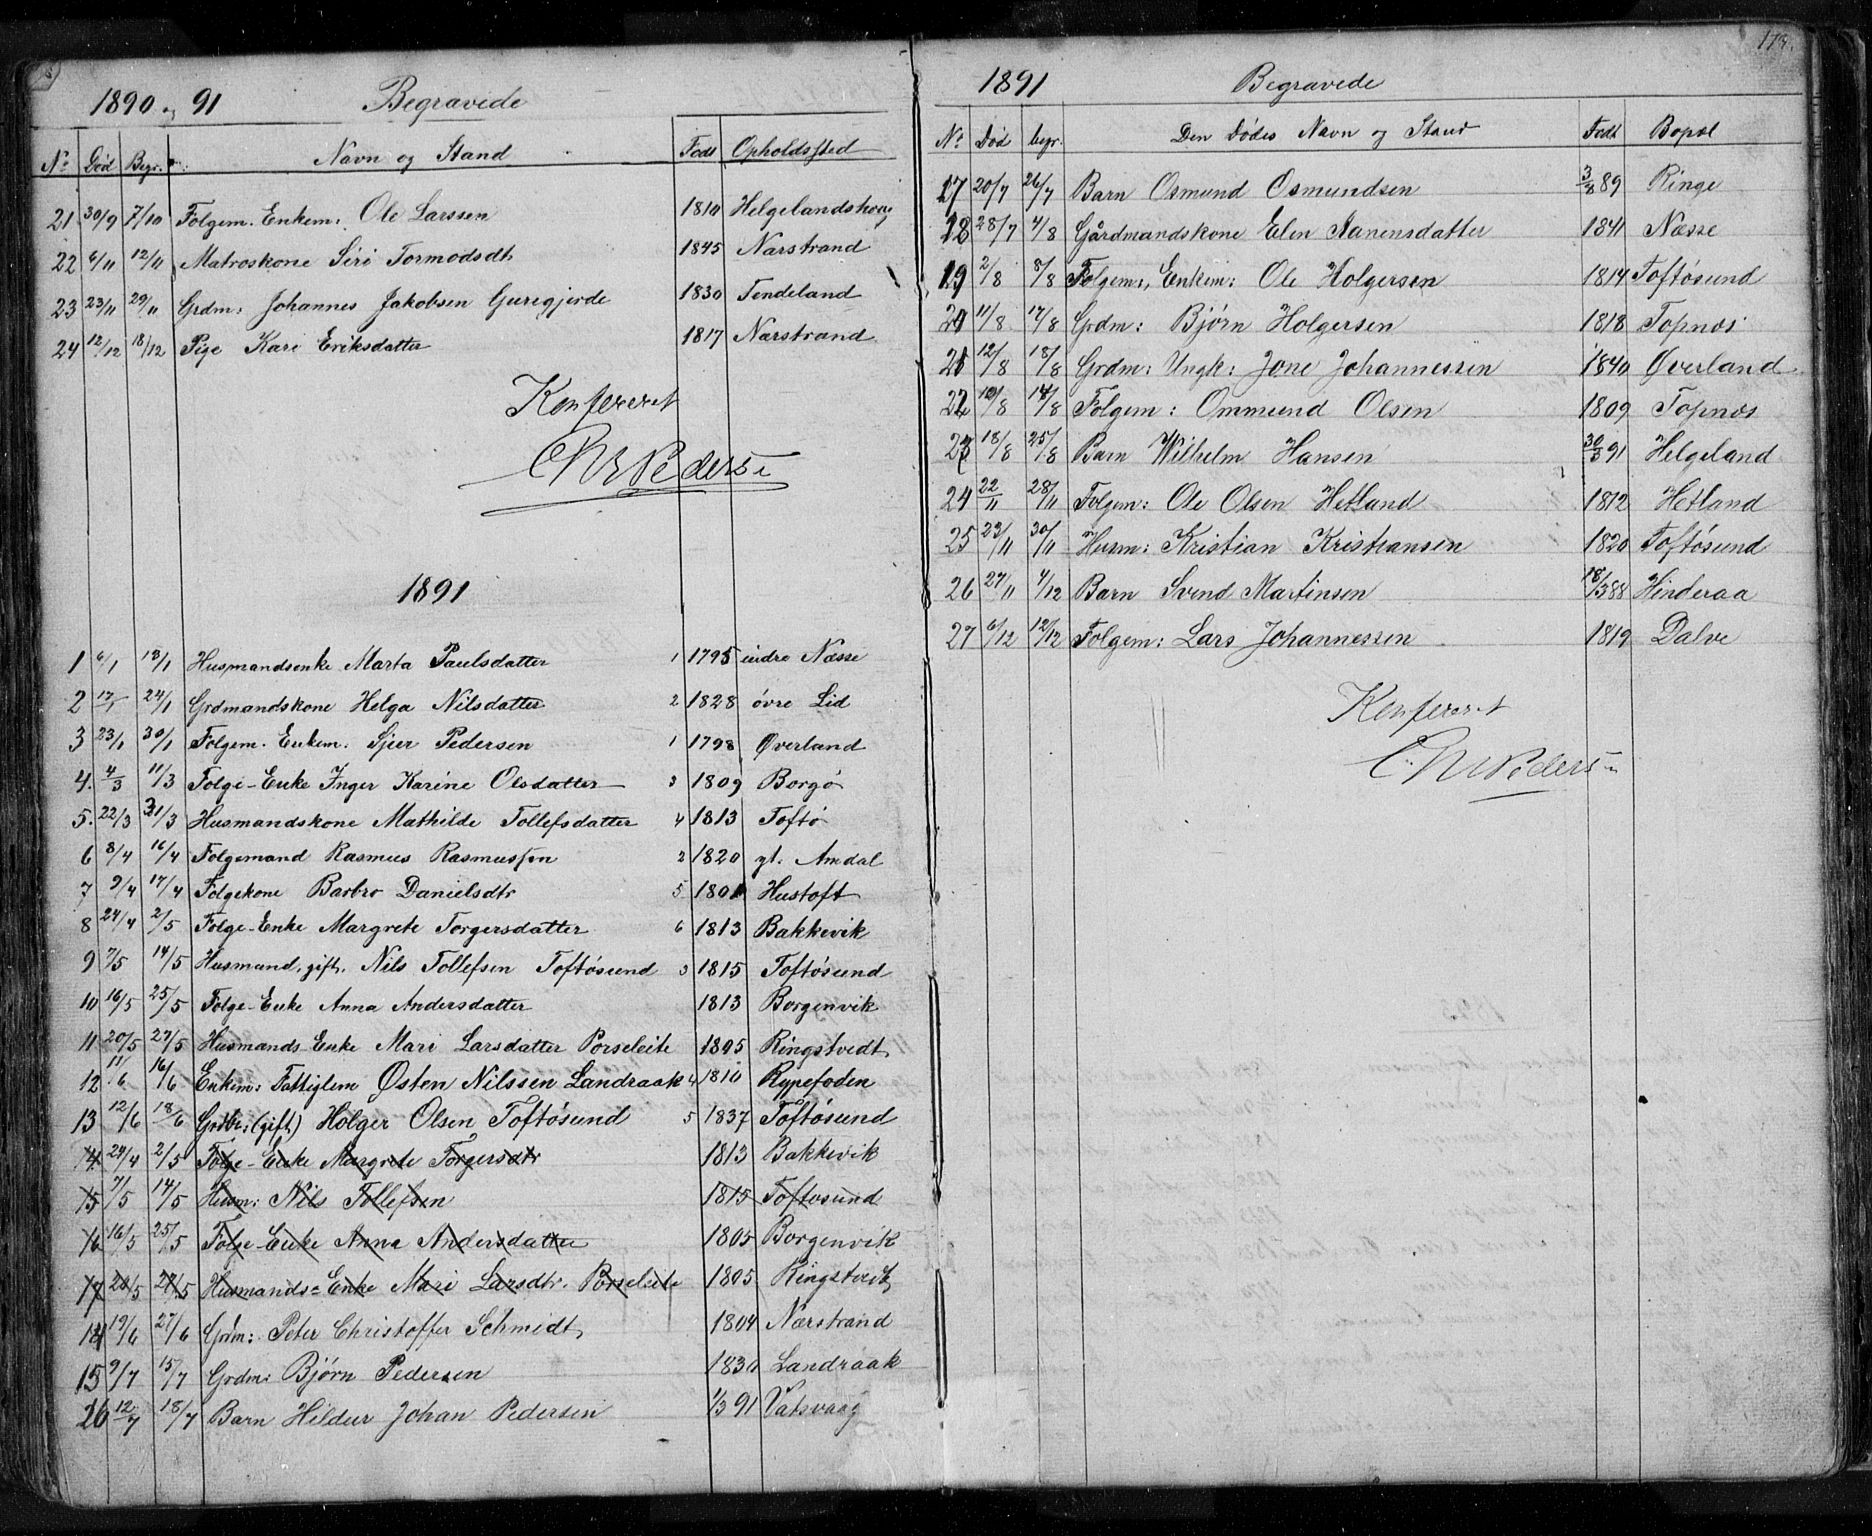 1890 og 91 Begravede
No Död Begr. Navn og Stand Född Opholdssted
21 30/9 7/10 Folgem. Enkem: Ole Larssen 1810 Helgelandshoug
22 6/11 12/11 Matroskone Siri Tormodsdt 1845 Narstrand
23 23/11 29/11 Grdm: Johannes Jakobsen Guregjerde 1830 Tendeland
24 12/12 18/12 Pige Kari Eriksdatter 1817 Narstrand
Konfereret
Chr Pedersen
1891
1 6/1 13/1 Husmandsenke Marta Paulsdatter 1 1795 indre Næsse
2 17/1 24/1 Grdmandskone Helga Nilsdatter 2 1828 övre Lid
3 23/1 30/1 Folgem. Enkem. Sjur Pedersen 1 1798 Øverland
4. 4/3 11/3 Folge-Enke Inger Karine Olsdatter 3 1809 Borgö
5. 22/3 31/3 Husmandskone Mathilde Tollefsdatter 4 1813 Toftö
6 8/4 16/4 Folgemand Rasmus Rasmussen 2 1820 yt. Amdal
7 9/4 17/4 Folgekone Barbro Danielsdtr 5 1801 Hustoft
8 24/4 2/5 Folge-Enke Margrete Torgersdatter 6 1813 Bakkevik
9 7/5 14/5 Husmand, gift. Nils Tollefsen Toftösund 3 1815 Toftösund
10 16/5 25/5 Folge-Enke Anna Andersdatter 1813 Borgenvik
11 20/5 27/5 Husmands Enke Mari Larsdatter Porseleite 1805 Ringstvedt
12 11/6 16/6 Enkem: Fattiglem Østen Nilssen Landraak 4 1810 Rypefoden
13 12/6 18/6 Grdbr: (gift) Holger Olsen Toftösund 5 1837 Toftösund
14 24/4 2/5 Folge-Enke Margrete Torgersdtr 1813 Bakkevik
15 7/5 14/5 Husm: Nils Tollefsen 1815 Toftosund
16 16/5 25/5 Folge-Enke Anna Andersdatter 1805 Borgenvik
17 20/5 27/5 Husmands=Enke Mari Larsdtr. Porseleite 1805 Ringstveit
14 19/6 27/6 Grdm: Peter Christoffer Schmidt, 1804 Nærstrand
15 9/7 15/7 Grdm: Björn Pedersen 1830 Landraak
16 12/7 18/7 Barn Hildur Johan Pedersen 1/3 91 Vatsvaag
179.
1891 Begravede
No Död begr. Den Dödes Navn og Stand Född Bopæl
17 20/7 26/7 Barn Osmund Osmundsen 3/8 89 Ringe
18 28/7 4/8 Gårdmandskone Elen Aanensdatter 1841 Næsse
19 2/8 8/8 Folgem:, Enkem: Ole Holgersen 1814 Toftösund
20 11/8 17/8 Grdm: Björn Holgersen 1818 Topnæs
21 12/8 18/8 Grdm: Ungk: Jone Johannessen 1840 Øverland
22 10/8 14/8 Folgem: Ommund Olsen 1809 Topnæs
23 18/8 25/8 Barn Wilhelm Hansen 30/3 91 Helgeland
24 22/11 28/11 Folgem: Ole Olsen Hetland 1812 Hetland
25 23/11 30/11 Husm: Kristian Kristiansen 1820 Toftösund
26 27/11 4/12 Barn Svend Martinsen 18/3 88 Hinderaa
27 6/12 12/12 Folgem: Lars Johannessen 1819 Dalve
Konfereret
Chr Pedersen